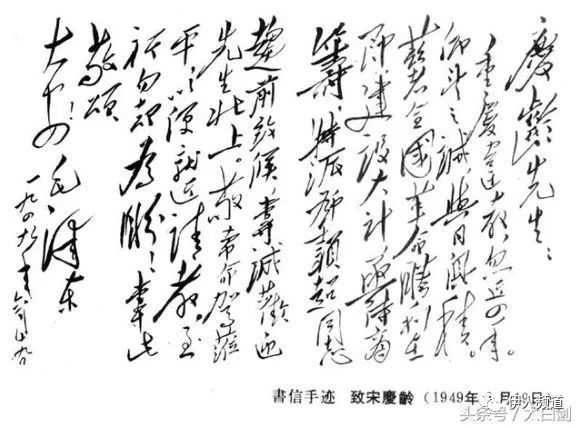 慶齡先生：
重慶違教，忽近四年。
仰望之誠，與日俱積。
茲者全國革命勝利在
即，建設大計，亟待商
籌，特派鄧穎超同志
趨前致候，專誠歡迎
先生北上。敬希命駕蒞
平，以便就近請教，至
祈勿卻為盼！專此
敬頌
大安！毛澤東
一九四九年六月十九
書信手迹 致宋慶齡（1949年 月 9日
伊人频道
头条号 / 大白剑